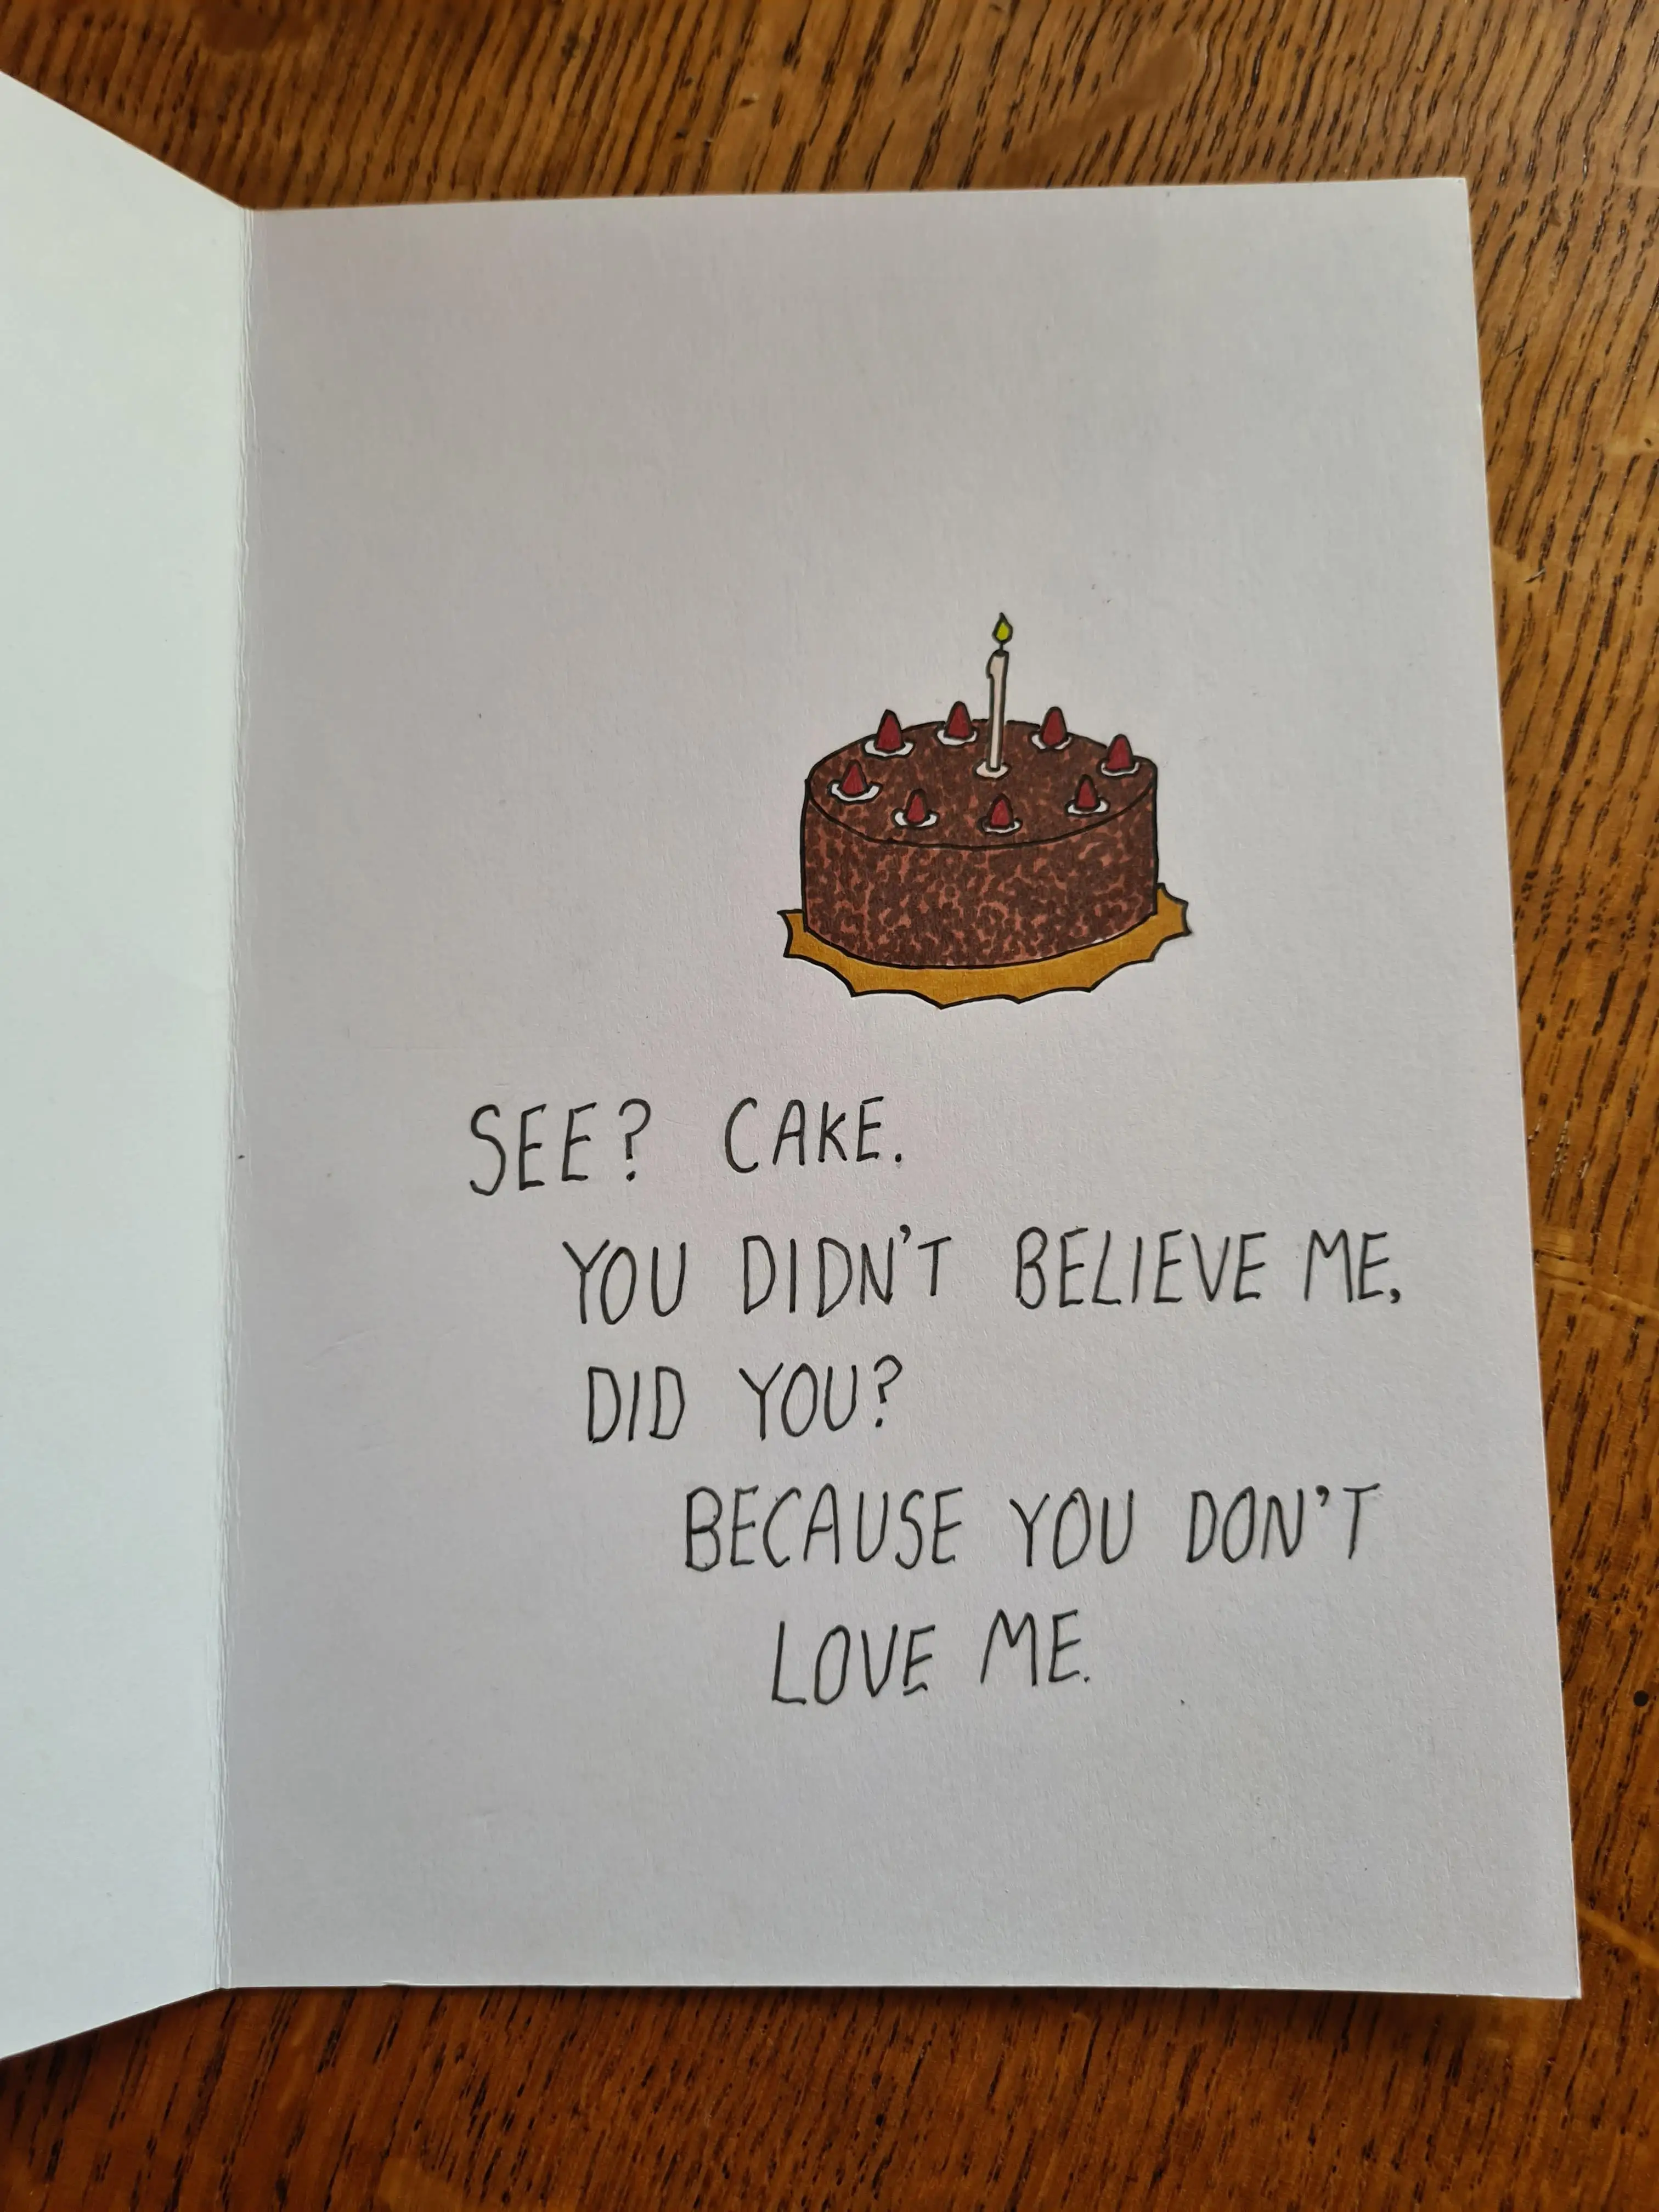 SEE? CAKE.
YOU DIDN'T BELIEVE ME,
DID YOU?
BECAUSE YOU DON'T
LOVE ME.